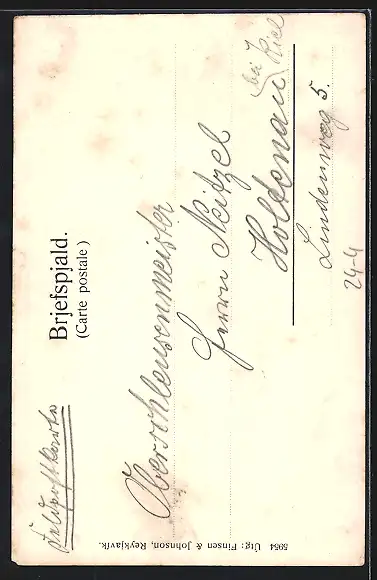 Feldpostkarte
Brjefspjald.
(Carte postale)
Oberschleusenmeister
Herrn Neitzel
Holtenau
bei Kiel
Lindenweg 5.
24-4
5954 Utg: Finsen & Johnson, Reykjavík.